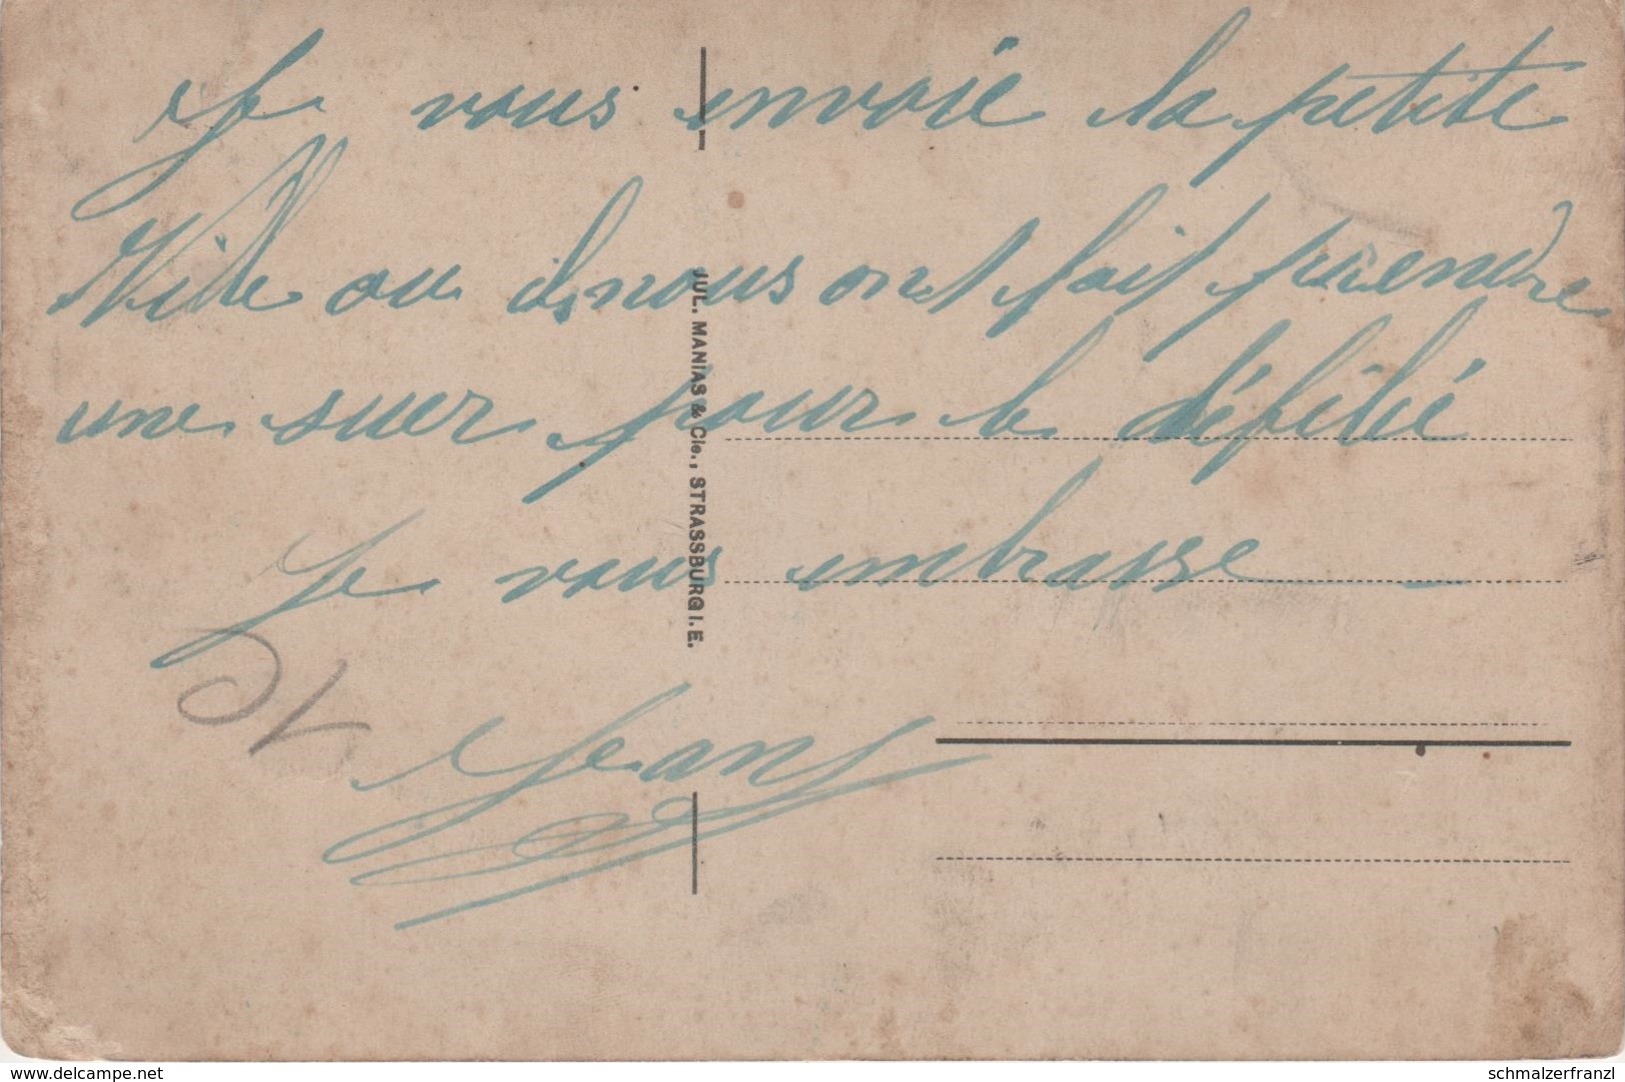 Je vous envoie la petite
Ville ou ils nous ont fait prendre
une suer pour le défilié
Je vous embrasse
Jean
JUL. MANIAS & Cie., STRASSBURG I. E.
www.delcampe.net
schmalzerfranzl